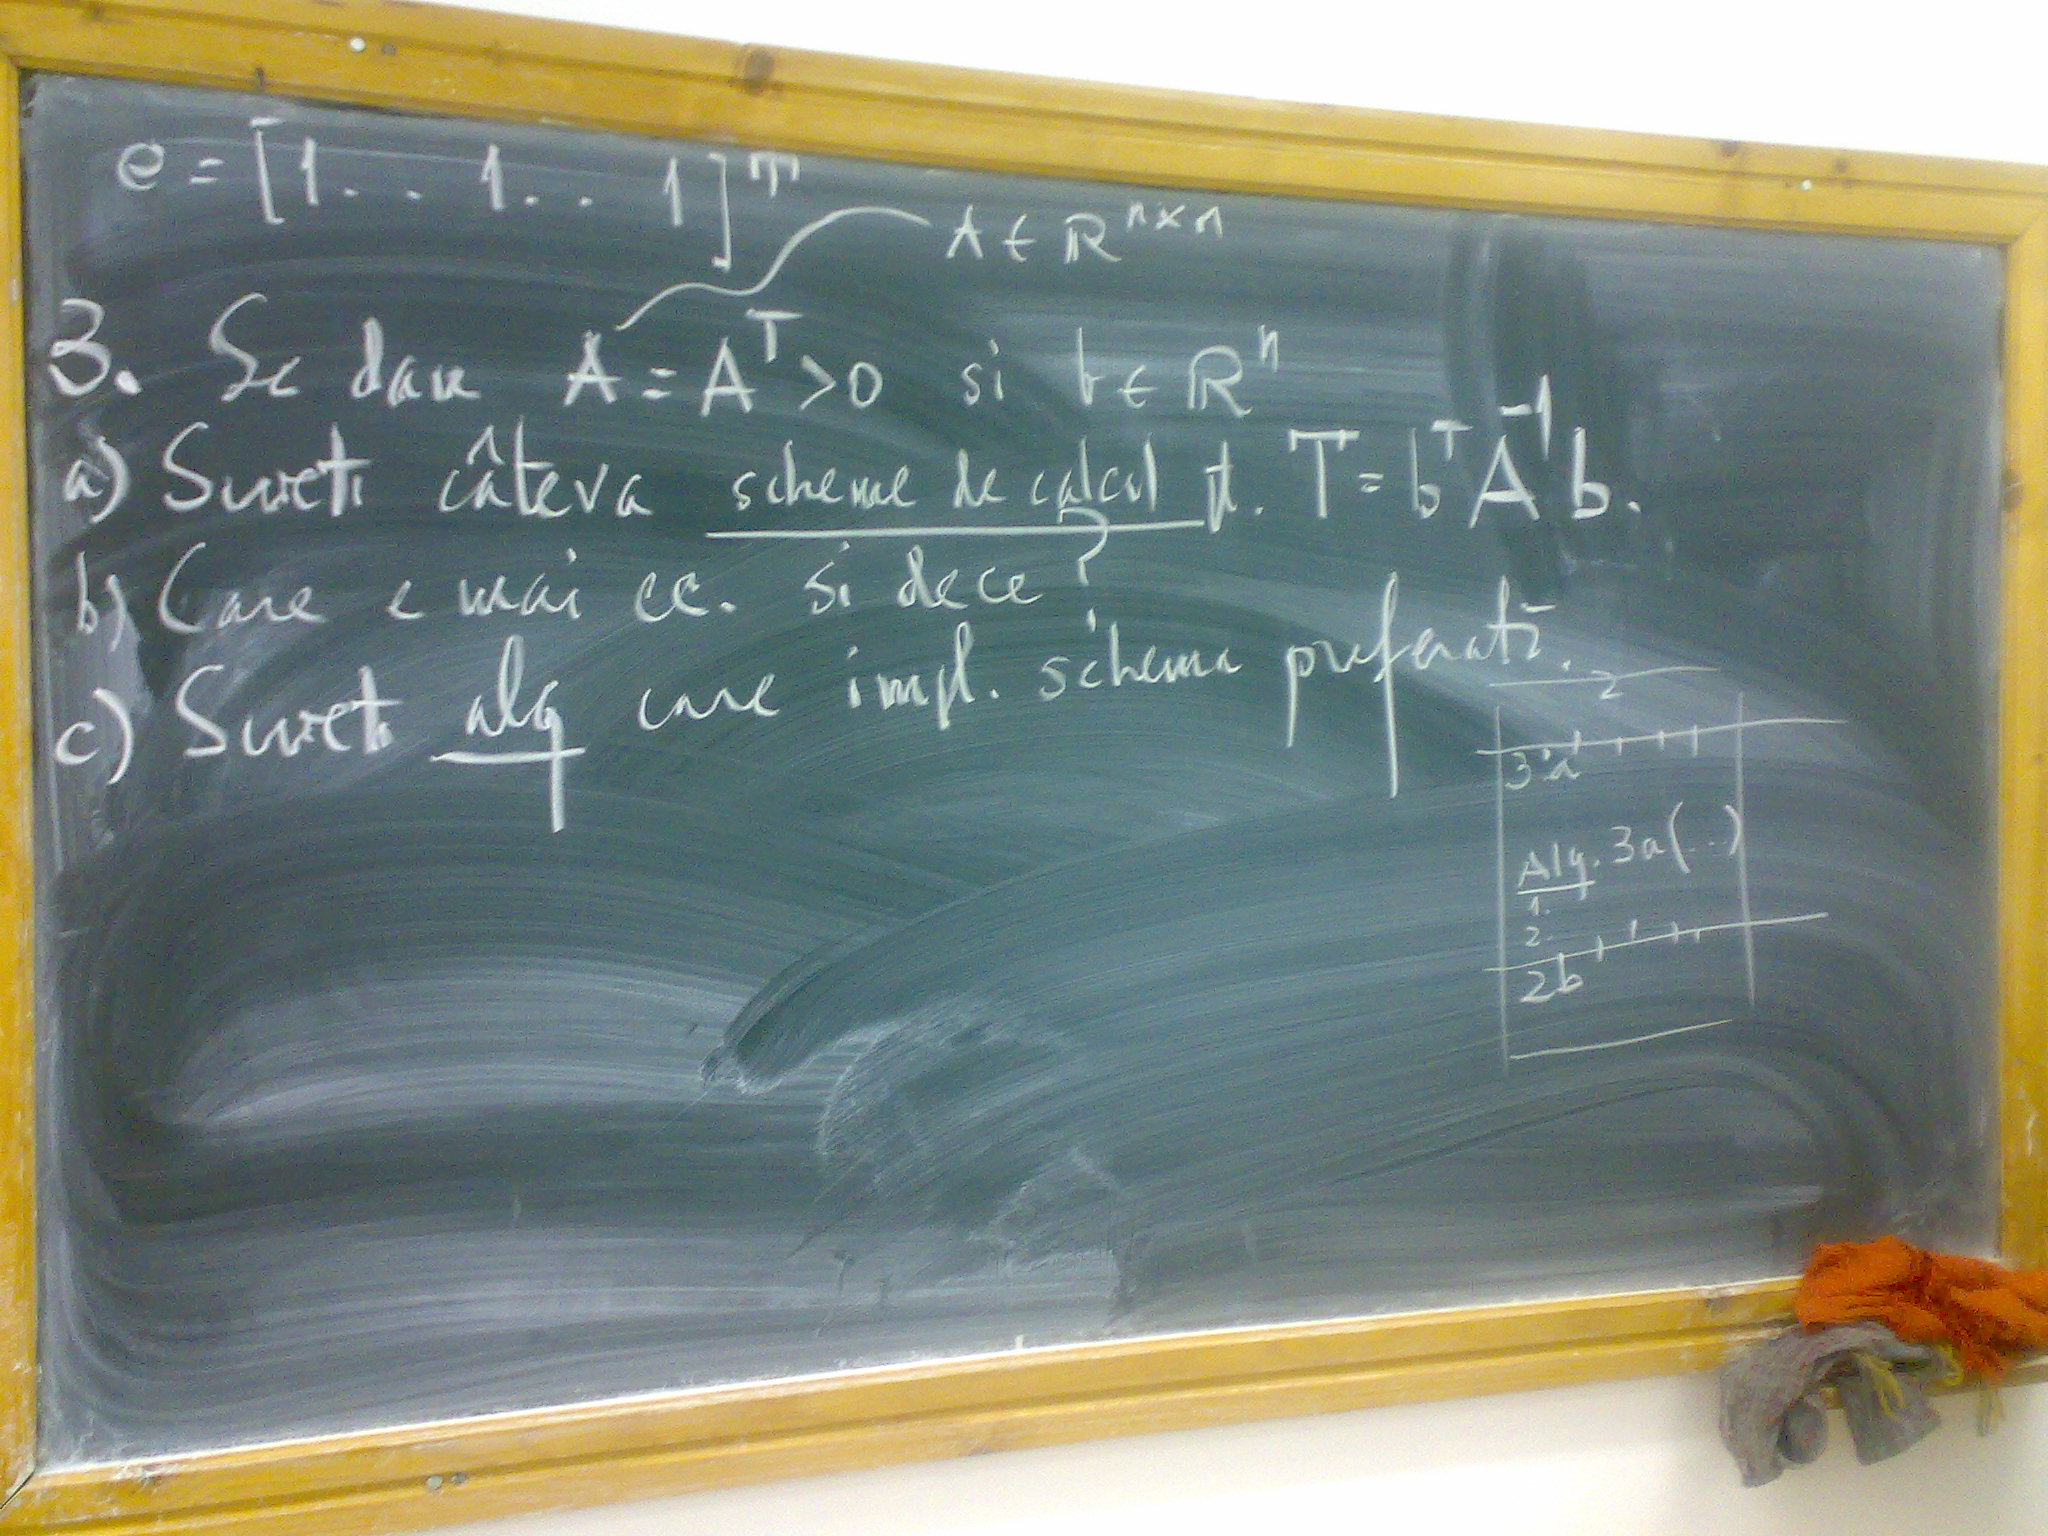 e = [1 . . 1 . . 1]ᵀ
A ∈ ℝⁿˣⁿ
3. Se dau A = Aᵀ > 0 si b ∈ ℝⁿ
a) Scrieti câteva scheme de calcul pt. T = bᵀ A⁻¹ b.
b) Care e mai ec. si de ce?
c) Scrieti alg care impl. schema preferată.
2
3.a
Alg. 3a(...)
1.
2.
2b